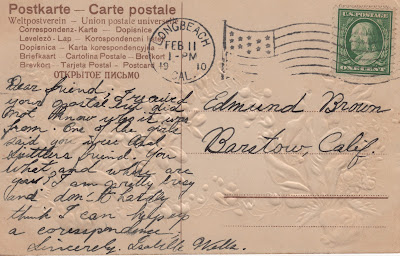 Postkarte — Carte postale
Weltpostverein — Union postale universelle
Correspondenz-Karte — Dopisnice
Levelező-Lap — Korespondencni listek
Dopisnica — Karta korespondencyjna
Briefkaart — Cartolina Postale — Brefkort
Brevkort — Tarjeta Postal — Postcard
ОТКРЫТОЕ ПИСЬМО
LONGBEACH
FEB 11
1-PM
1910
CAL.
ONE CENT
Edmund Brown
Barstow, Calif.
Dear friend, I received
your postal but did
not know who it was
from. One of the girls
said you were
friend. You
what and where are
you? I am pretty busy
and don't hardly
think I can keep up
a corespondence.
Sincerely, Watts.